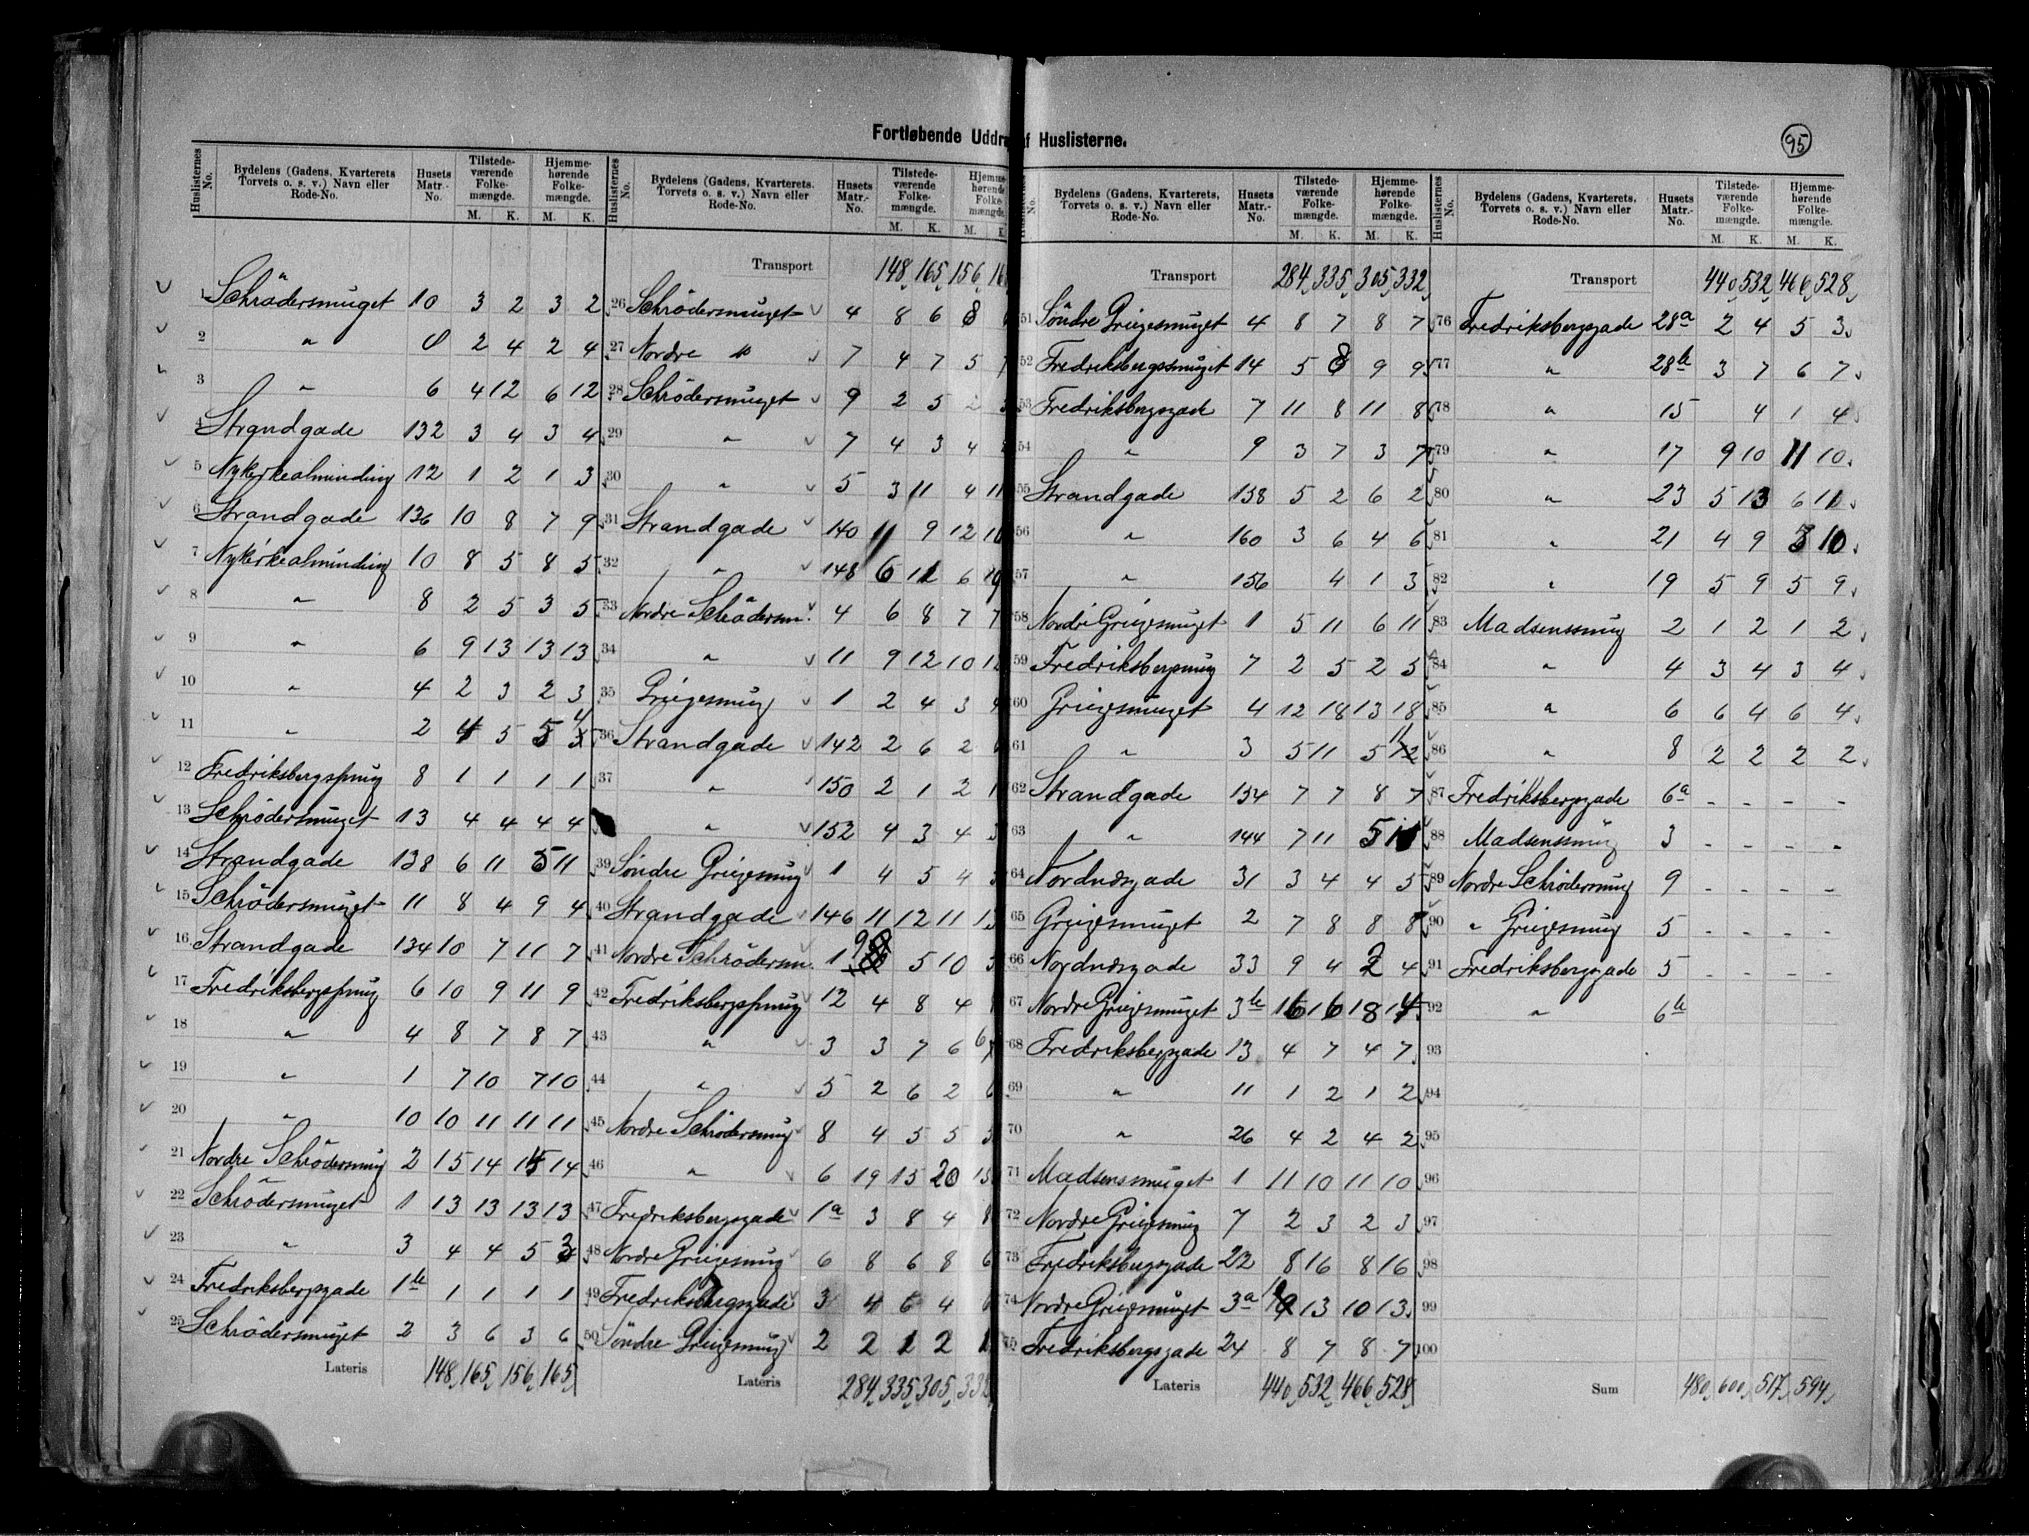 95
Fortløbende Uddr af Huslisterne.
Huslisternes No. Bydelens (Gadens, Kvarterets Torvets o. s. v.) Navn eller Rode-No. Husets Matr.-No. Tilstede-værende Folke-mængde. M. K. Hjemme-hørende Folke-mængde. M. K.
1 Schrödersmuget 10 3 2 3 2
2 " 2 4 2 4
3 " 6 4 12 6 12
4 Strandgade 132 3 4 3 4
5 Nykirkealminding 12 1 2 1 3
6 Strandgade 136 10 8 7 9
7 Nykirkealminding 10 8 5 8 5
8 " 8 2 5 3 5
9 " 6 9 13 13 13
10 " 4 2 3 2 3
11 " 2 4 5 5 4
12 Fredriksbergsmug 8 1 1 1 1
13 Schrödersmuget 13 4 4 4 4
14 Strandgade 138 6 11 5 11
15 Schrödersmuget 11 8 4 9 4
16 Strandgade 134 10 7 11 7
17 Fredriksbergsmug 6 10 9 11 9
18 " 4 8 7 8 7
19 " 1 7 10 7 10
20 " 10 10 11 11 11
21 Nordre Schrödersmug 2 15 14 15 14
22 Schrödersmuget 1 13 13 13 13
23 " 3 4 4 5 3
24 Fredriksbergsgade 1b 1 1 1 1
25 Schrödersmuget 2 3 6 3 6
Lateris 148 165 156 165
Huslisternes No. Bydelens (Gadens, Kvarterets, Torvets o. s. v.) Navn eller Rode-No. Husets Matr.-No. Tilstede-værende Folke-mængde. M. K. Hjemme-hørende Folke-mængde. M. K
Transport 148 165 156 16
26 Schrödersmuget 4 8 6 8
27 Nordre " 7 4 7 5 7
28 Schrödersmuget 9 2 5 2 3
29 " 7 4 3 4
30 " 5 3 11 4 11
31 Strandgade 140 11 9 12 10
32 " 148 6 11 6 10
33 Nordre Schrödersm. 4 6 8 7 7
34 " 11 9 12 10 12
35 Griegesmug 1 2 4 3 4
36 Strandgade 142 2 6 2 6
37 " 150 2 1 2 1
" 152 4 3 4 3
39 Söndre Griegesmug 1 4 5 4 3
40 Strandgade 146 11 12 11 13
41 Nordre Schrödersm. 1 9 5 10 3
42 Fredriksbergsmug 12 4 8 4
43 " 3 3 7 6 6
44 " 5 2 6 2 6
45 Nordre Schrödersmug 8 4 5 5 5
46 " 6 19 15 20 15
47 Fredriksbergsgade 1a 3 8 4 8
48 Nordre Griegesmug 6 8 6 8 6
49 Fredriksbergsgade 3 4 6 4 6
50 Söndre Griegesmug 2 2 1 2 1
Lateris 284 335 305 332
No. Bydelens (Gadens, Kvarterets, Torvets o. s. v.) Navn eller Rode-No. Husets Matr.-No. Tilstede-værende Folke-mængde. M. K. Hjemme-hørende Folke-mængde. M. K.
Transport 284 335 305 332
51 Söndre Griegesmuget 4 8 7 8 7
52 Fredriksbergssmuget 14 5 8 9 9
53 Fredriksbergsgade 7 11 8 11 8
54 " 9 3 7 3 7
55 Strandgade 158 5 2 6 2
56 " 160 3 6 4 6
57 " 156 4 1 3
58 Nordre Griegesmuget 1 5 11 6 11
59 Fredriksbergsmug 7 2 5 2 5
60 Griegesmuget 4 12 18 13 18
61 " 3 5 11 5 11
62 Strandgade 154 7 7 8 7
63 " 144 7 11 5 11
64 Nordnæsgade 31 3 4 4 5
65 Griegesmuget 2 7 8 8 8
66 Nordnæsgade 33 9 4 2 4
67 Nordre Griegesmuget 3b 16 16 18 14
68 Fredriksbergsgade 13 4 7 4 7
69 " 11 1 2 1 2
70 " 26 4 2 4 2
71 Madsenssmuget 1 11 10 11 10
72 Nordre Griegesmug 7 2 3 2 3
73 Fredriksbergsgade 22 8 16 8 16
74 Nordre Griegesmuget 3a 10 13 10 13
75 Fredriksbergsgade 24 8 7 8 7
Lateris 440 532 466 528
Huslisternes No. Bydelens (Gadens, Kvarterets, Torvets o. s. v.) Navn eller Rode-No. Husets Matr.-No. Tilstede-værende Folke-mængde. M. K. Hjemme-hørende Folke-mængde. M. K.
Transport 440 532 466 528
76 Fredriksbergsgade 28a 2 4 5 3
77 " 28b 3 7 6 7
78 " 15 4 1 4
79 " 17 9 10 11 10
80 " 23 5 13 6 11
81 " 21 4 9 3 10
82 " 19 5 9 5 9
83 Madsenssmug 2 1 2 1 2
84 " 4 3 4 3 4
85 " 6 6 4 6 4
86 " 8 2 2 2 2
87 Fredriksbergsgade 6a - - - -
88 Madsenssmug 3 - - - -
89 Nordre Schrödersmug 9 - - - -
90 " Griegesmug 5 - - - -
91 Fredriksbergsgade 5 - - - -
92 " 6b
93
94
95
96
97
98
99
100
Sum 480 600 517 594